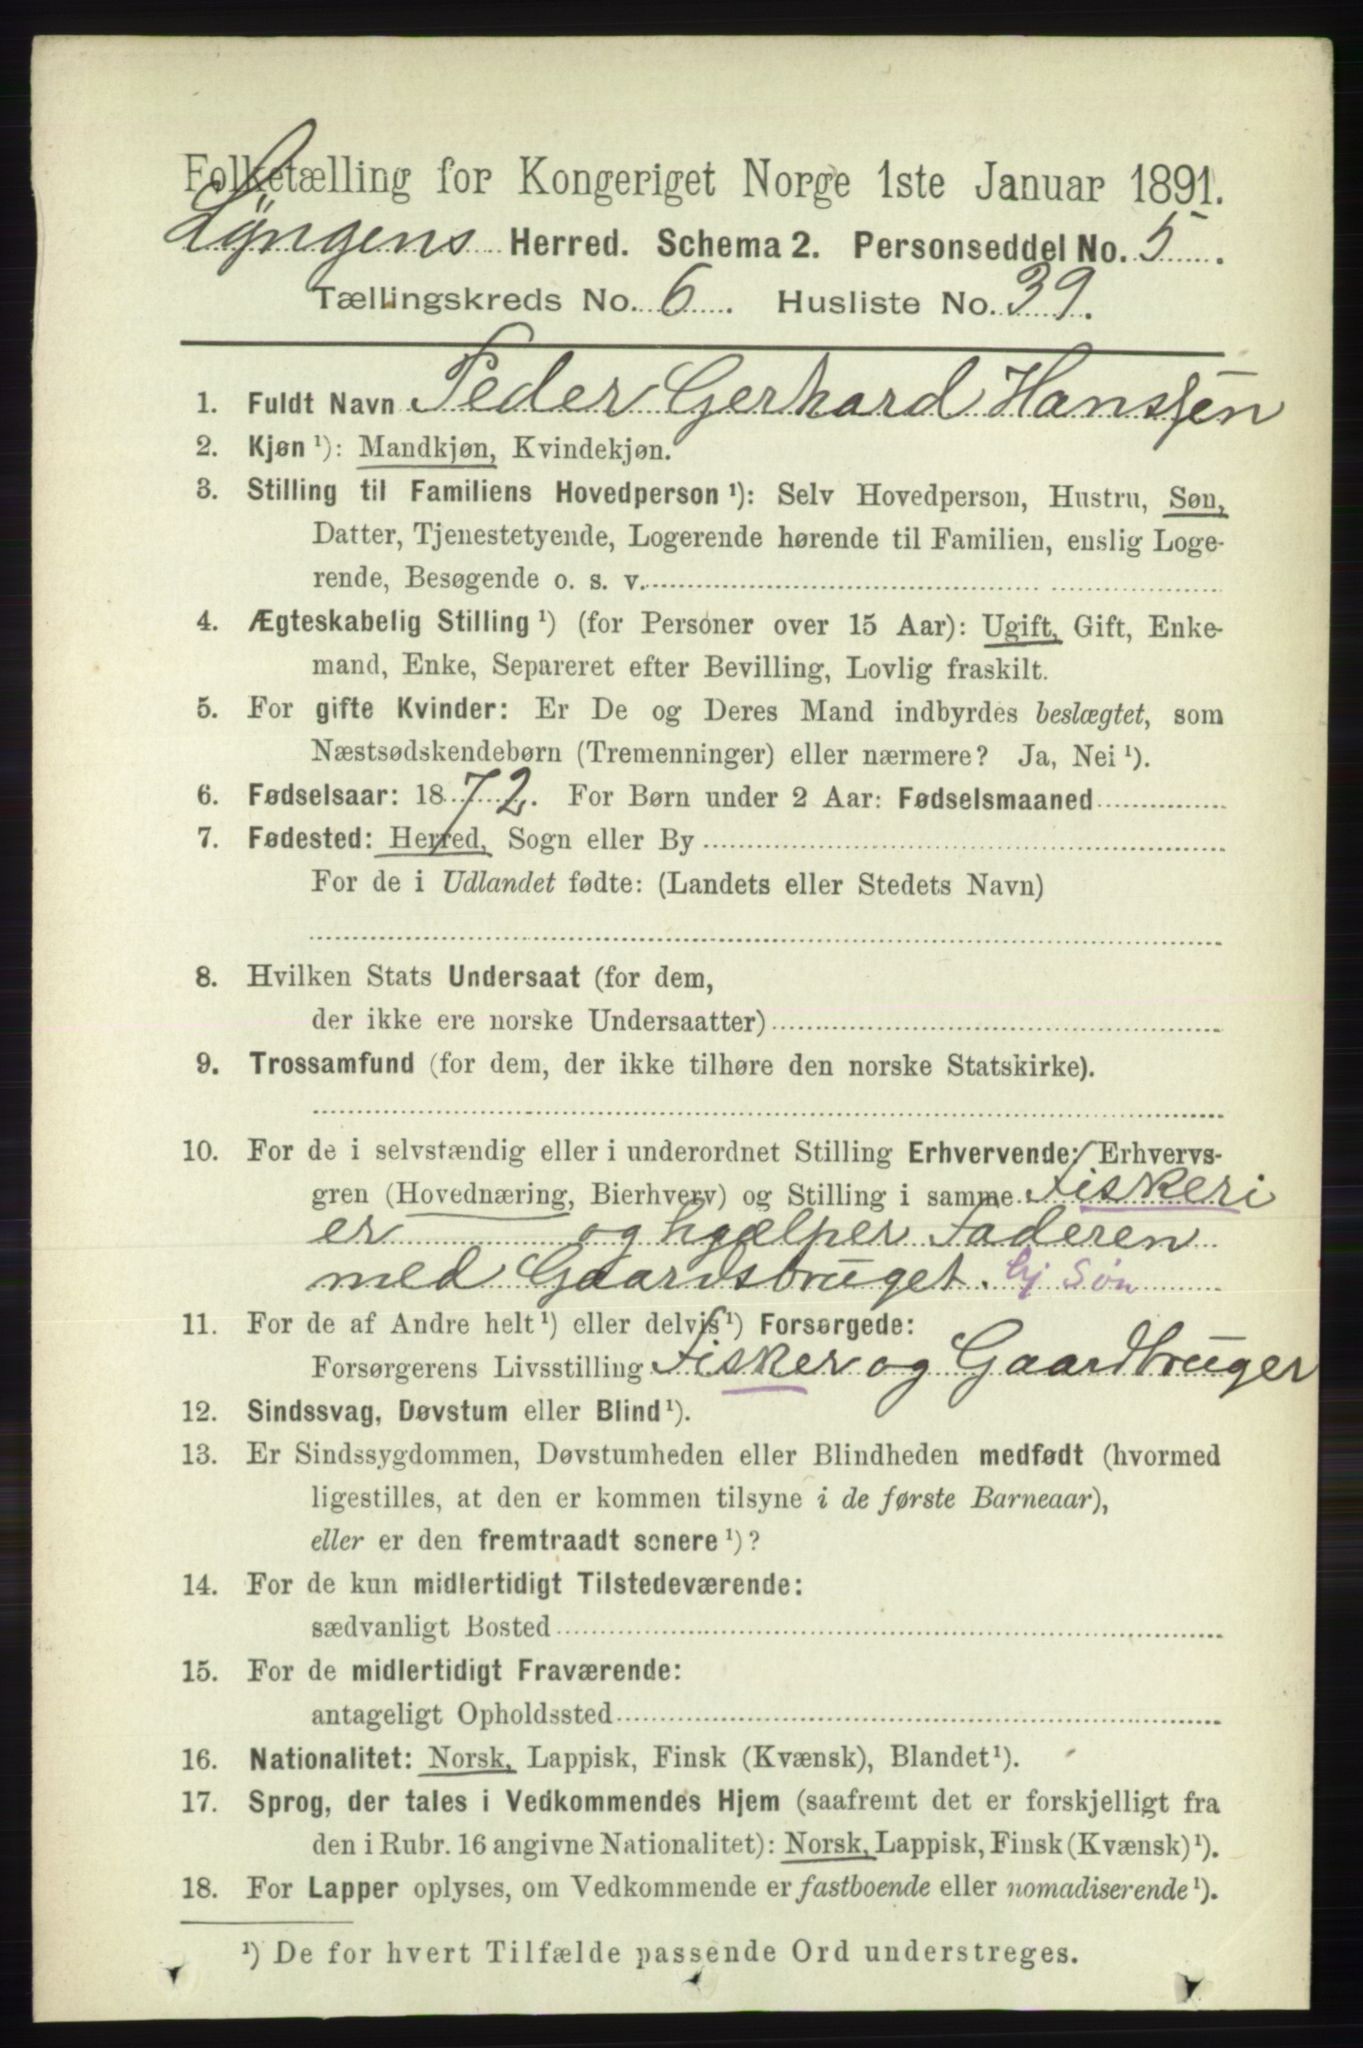 Folketælling for Kongeriget Norge 1ste Januar 1891.
Lÿngens Herred. Schema 2. Personseddel No. 5.
Tællingskreds No. 6. Husliste No. 39.
1. Fuldt Navn Peder Gerhard Hanssen
2. Kjøn ¹): Mandkjøn, Kvindekjøn.
3. Stilling til Familiens Hovedperson ¹): Selv Hovedperson, Hustru, Søn,
Datter, Tjenestetyende, Logerende hørende til Familien, enslig Loge-
rende, Besøgende o. s. v.
4. Ægteskabelig Stilling ¹) (for Personer over 15 Aar): Ugift, Gift, Enke-
mand, Enke, Separeret efter Bevilling, Lovlig fraskilt.
5. For gifte Kvinder: Er De og Deres Mand indbyrdes beslægtet, som
Næstsødskendebørn (Tremenninger) eller nærmere? Ja, Nei ¹).
6. Fødselsaar: 1872. For Børn under 2 Aar: Fødselsmaaned
7. Fødested: Herred, Sogn eller By
For de i Udlandet fødte: (Landets eller Stedets Navn)
8. Hvilken Stats Undersaat (for dem,
der ikke ere norske Undersaatter)
9. Trossamfund (for dem, der ikke tilhøre den norske Statskirke).
10. For de i selvstændig eller i underordnet Stilling Erhvervende: Erhvervs-
gren (Hovednæring, Bierhverv) og Stilling i samme Fiskeri
er og hjælper Faderen
med Gaardsbruget. Gj Søn
11. For de af Andre helt ¹) eller delvis ¹) Forsørgede:
Forsørgerens Livsstilling Fisker og Gaardbruger
12. Sindssvag, Døvstum eller Blind ¹).
13. Er Sindssygdommen, Døvstumheden eller Blindheden medfødt (hvormed
ligestilles, at den er kommen tilsyne i de første Barneaar),
eller er den fremtraadt senere ¹)?
14. For de kun midlertidigt Tilstedeværende:
sædvanligt Bosted
15. For de midlertidigt Fraværende:
antageligt Opholdssted
16. Nationalitet: Norsk, Lappisk, Finsk (Kvænsk), Blandet ¹).
17. Sprog, der tales i Vedkommendes Hjem (saafremt det er forskjelligt fra
den i Rubr. 16 angivne Nationalitet): Norsk, Lappisk, Finsk (Kvænsk) ¹).
18. For Lapper oplyses, om Vedkommende er fastboende eller nomadiserende ¹).
¹) De for hvert Tilfælde passende Ord understreges.